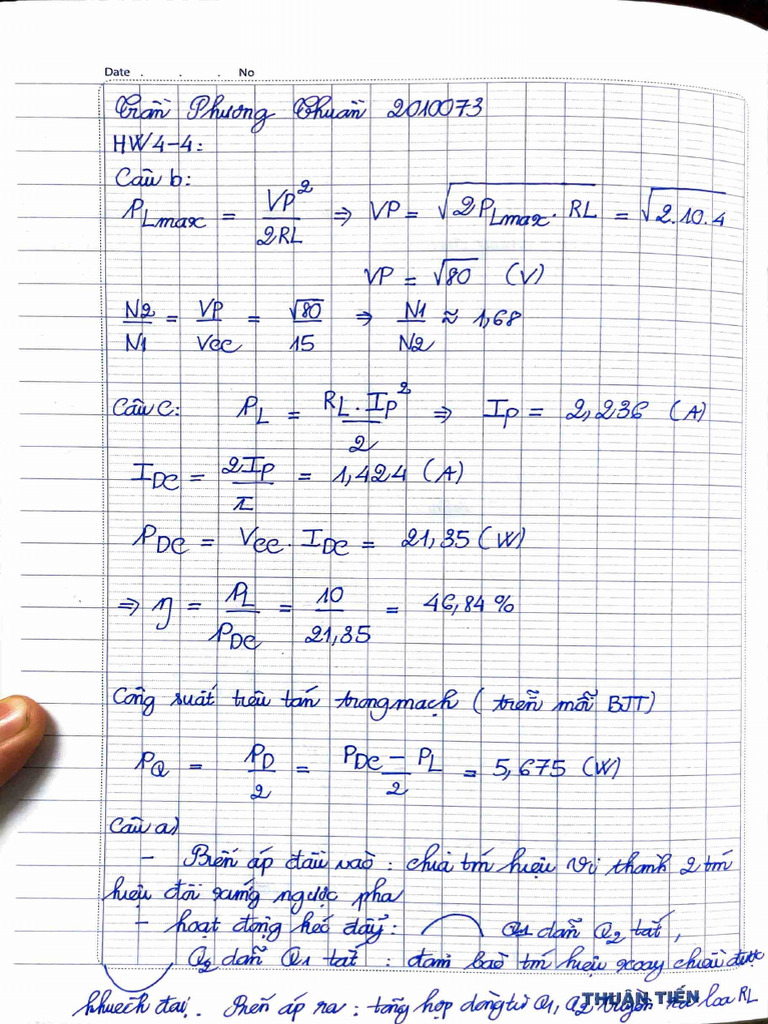 Date . . . No
Trần Phương Thuần 2010073
HW4-4:
Câu b:
P_Lmax = VP²/2RL ⇒ VP = √(2P_Lmax . RL) = √(2.10.4)
VP = √80 (V)
N2/N1 = VP/Vcc = √80/15 ⇒ N1/N2 ≈ 1,68
Câu c: P_L = RL.Ip²/2 ⇒ Ip = 2,236 (A)
I_DC = 2Ip/π = 1,424 (A)
P_DC = Vcc . I_DC = 21,35 (W)
⇒ η = P_L/P_DC = 10/21,35 = 46,84 %
Công suất tiêu tán trong mạch ( trên mỗi BJT)
P_Q = P_D/2 = (P_DC - P_L)/2 = 5,675 (W)
Câu a)
- Biến áp đầu vào : chia tín hiệu Vi thành 2 tín
hiệu đối xứng ngược pha
- hoạt động kéo đẩy : Q1 dẫn Q2 tắt ,
Q2 dẫn Q1 tắt : đảm bảo tín hiệu xoay chiều được
khuếch đại. Biến áp ra : tổng hợp dòng từ Q1, Q2 truyền ra loa RL
THUẬN TIẾN